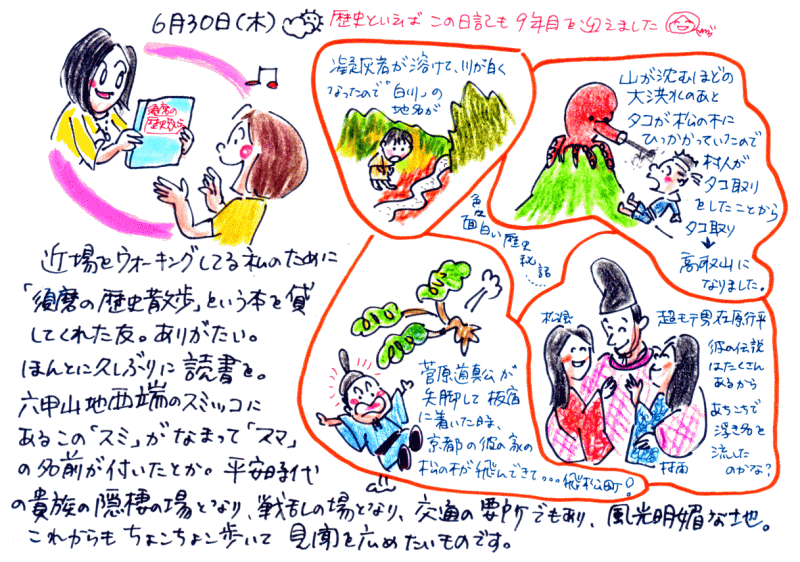 6月30日(木)
歴史といえば この日記も 9年目を迎えました
須磨の
歴史散歩
近場をウォーキングしてる私のために
「須磨の歴史散歩」という本を貸
してくれた友。ありがたい。
ほんとに久しぶりに読書を。
六甲山地西端のスミッコに
あるこの「スミ」がなまって「スマ」
の名前が付いたとか。平安時代
の貴族の隠棲の場となり、戦乱の場となり、交通の要所でもあり、風光明媚な土地。
これからもちょこちょこ歩いて 見聞を広めたいものです。
凝灰岩が溶けて、川が白く
なったので「白川」の
地名が
山が沈むほどの
大洪水のあと
タコが松の木に
ひっかかっていたので
村人が
タコ取り
をしたことから
タコ取り
↓
高取山に
なりました。
色々
面白い歴史
秘話
菅原道真公が
失脚して 板宿
に着いた時、
京都の彼の家の
松の木が飛んできて・・・飛松町!
松風
超モテ男在原行平
彼の伝説
はたくさん
あるから
あちこちで
浮き名を
流した
のかな?
村雨